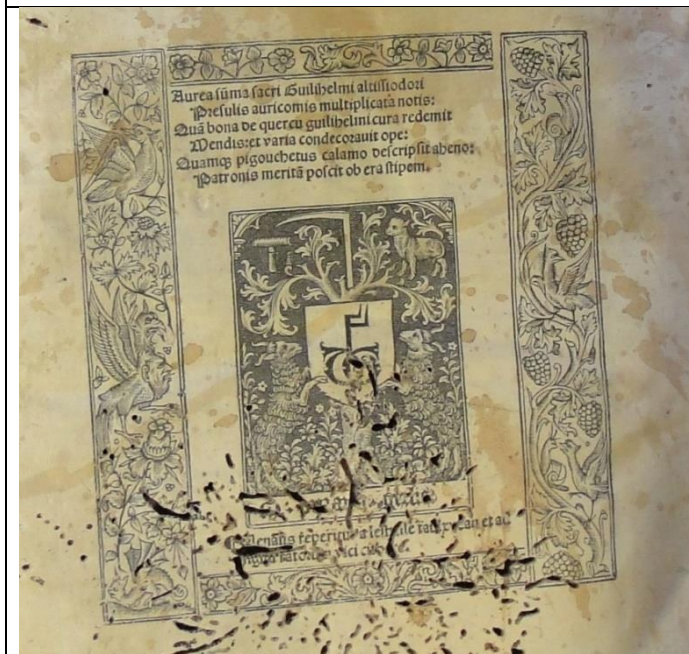 Aurea sūma sacri Guilihelmi altissiodori
Presulis auricomis multiplicatā notis:
Quā bona de quercu guilihelmi cura redemit
Mendis: et varia condecorauit ope:
Quamqꝫ pigouchetus calamo descripsit aheno:
Patronis meritā poscit ob era stipem.
et ad
vici